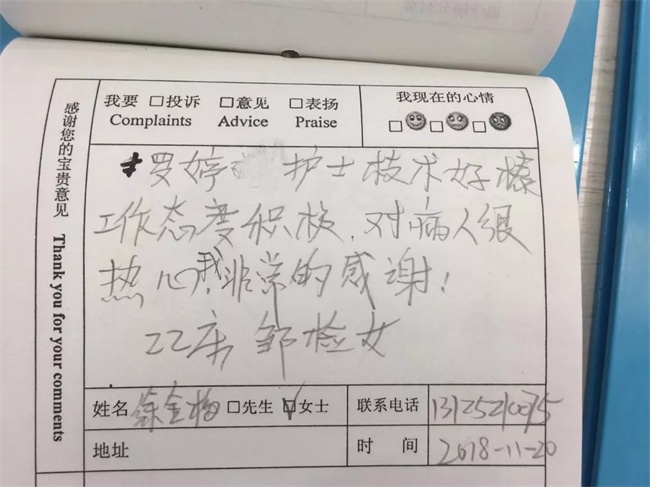 感谢您的宝贵意见 Thank you for your comments
我要 □投诉 □意见 □表扬
Complaints Advice Praise
我现在的心情
□ □ □
罗婷 护士技术好棒
工作态度积极,对病人很
热心,我非常的感谢!
22床 邹检女
姓名 徐金梅 □先生 ☑女士
联系电话
地址
时 间 2018-11-20